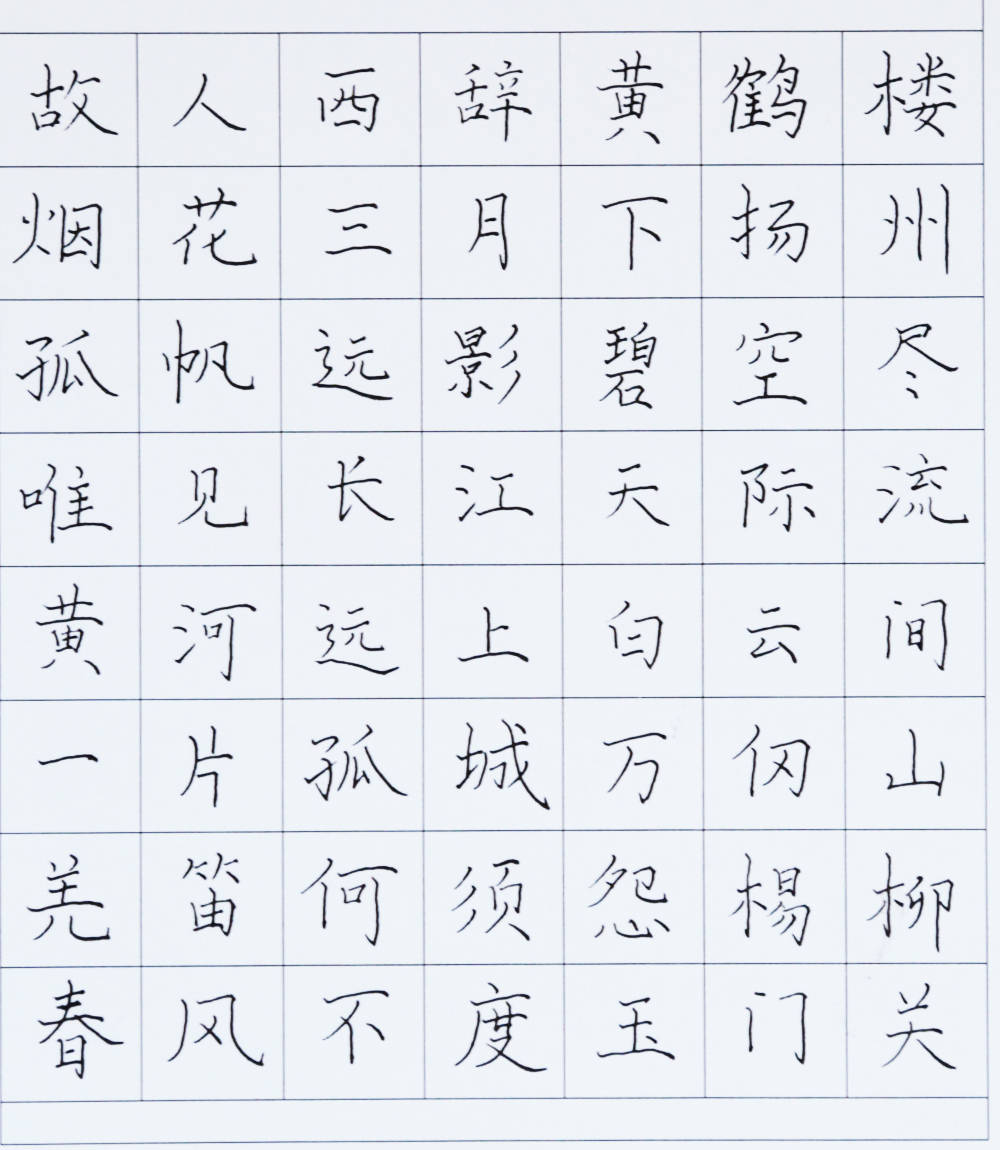 故人西辞黄鹤楼
烟花三月下扬州
孤帆远影碧空尽
唯见长江天际流
黄河远上白云间
一片孤城万仞山
羌笛何须怨杨柳
春风不度玉门关